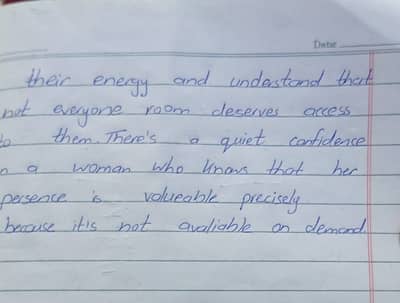 Date
their energy and understand that
not everyone room deserves access
to them. There's a quiet confidence
n a woman who knows that her
persence is valueable precisely
because it's not avaliable on demand.